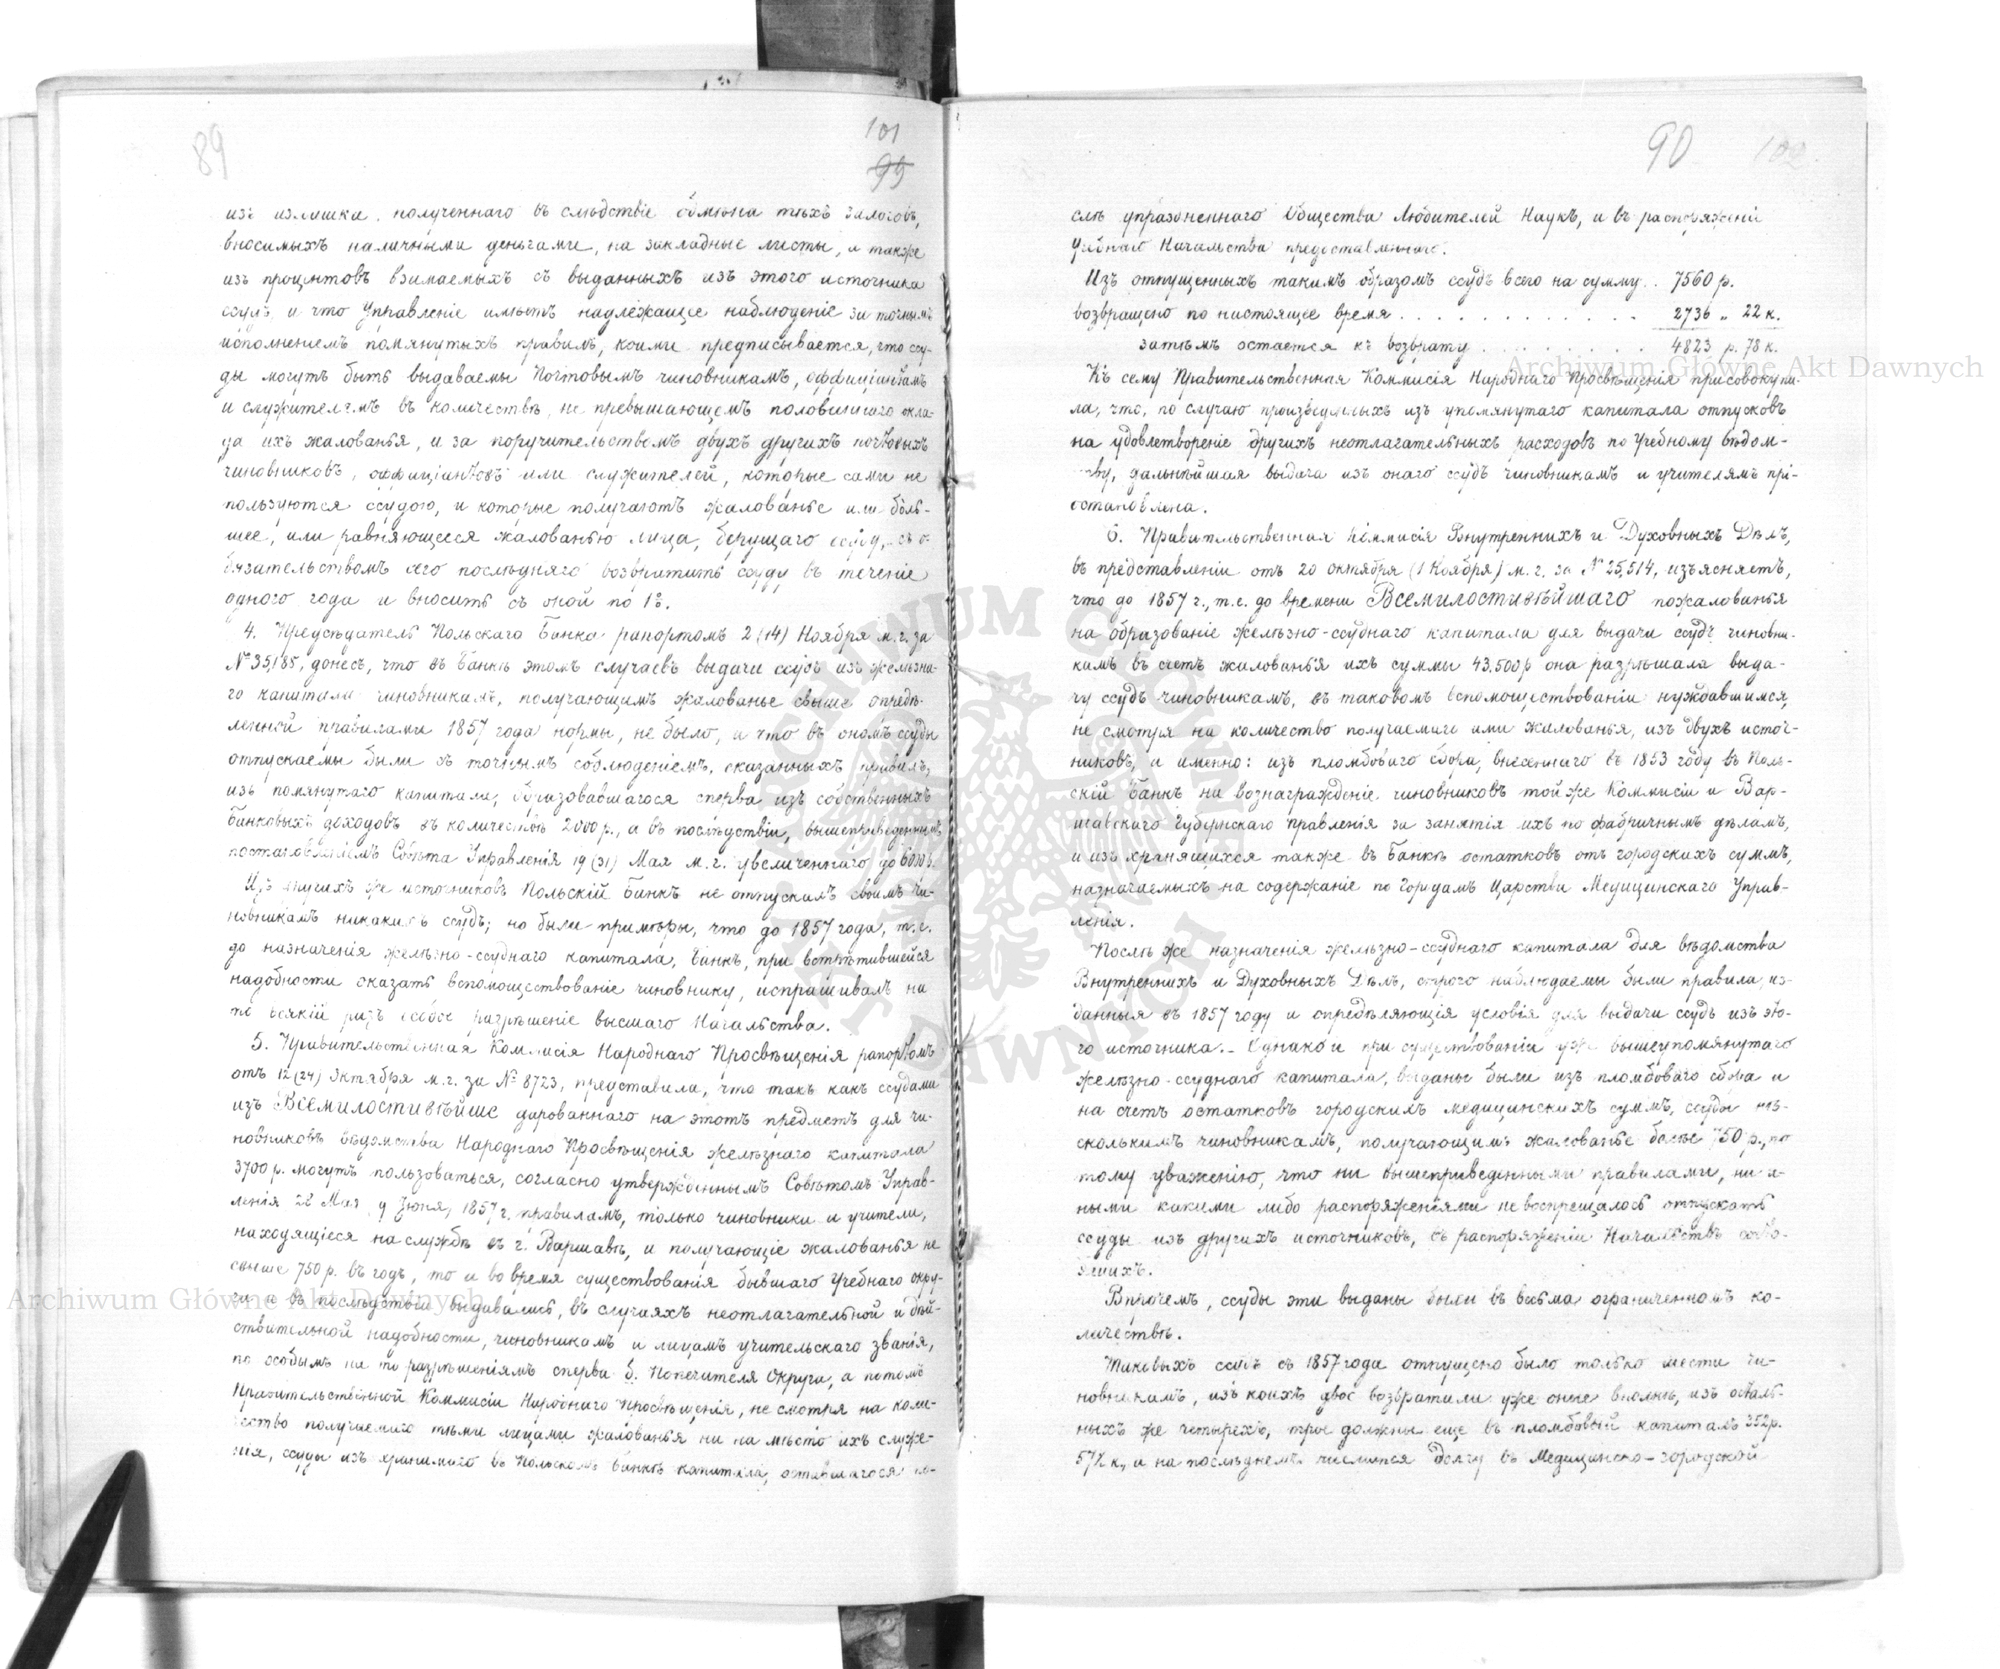 89
101
95
изъ излишка, полученнаго въ слѣдствіе обмѣна тѣхъ залоговъ,
вносимыхъ наличными деньгами, на закладные листы, а также
изъ процентовъ взимаемыхъ съ выданныхъ изъ этого источника
ссудъ, и что Управленіе имѣетъ надлежащее наблюденіе за точнымъ
исполненіемъ помянутыхъ правилъ, коими предписывается, что ссу-
ды могутъ быть выдаваемы Почтовымъ чиновникамъ, оффиціантамъ
и служителямъ въ количествѣ, не превышающемъ половиннаго окла-
да ихъ жалованья, и за поручительствомъ двухъ другихъ почтовыхъ
чиновниковъ, оффиціантовъ или служителей, которые сами не
пользуются ссудою, и которые получаютъ жалованье или боль-
шее, или равняющееся жалованью лица, берущаго ссуду, съ о-
бязательствомъ сего послѣдняго возвратить ссуду въ теченіе
одного года и вносить съ оной по 1%.
4. Предсѣдатель Польскаго Банка рапортомъ 2 (14) Ноября м.г. за
№ 35,185, донесъ, что въ Банкѣ этомъ случаевъ выдачи ссудъ изъ желѣзна-
го капитала чиновникамъ, получающимъ жалованье свыше опредѣ-
ленной правилами 1857 года нормы, не было, и что въ ономъ ссуды
отпускаемы были съ точнымъ соблюденіемъ сказанныхъ правилъ,
изъ помянутаго капитала, образовавшагося сперва изъ собственныхъ
Банковыхъ доходовъ въ количествѣ 2000 р., а въ послѣдствіи, вышеприведеннымъ
постановленіемъ Совѣта Управленія 19 (31) Мая м.г. увеличеннаго до 6000 р.
Изъ другихъ же источниковъ Польскій Банкъ не отпускалъ своимъ чи-
новникамъ никакихъ ссудъ; но были примѣры, что до 1857 года, т.е.
до назначенія желѣзно-ссуднаго капитала, Банкъ, при встрѣтившейся
надобности оказать вспомоществованіе чиновнику, испрашивалъ на
то всякій разъ особое разрѣшеніе высшаго Начальства.
5. Правительственная Коммисія Народнаго Просвѣщенія рапортомъ
отъ 12 (24) Октября м.г. за № 8723, представила, что такъ какъ ссудами
изъ Всемилостивѣйше дарованнаго на этотъ предметъ для чи-
новниковъ вѣдомства Народнаго Просвѣщенія желѣзнаго капитала
3700 р. могутъ пользоваться, согласно утвержденнымъ Совѣтомъ Управ-
ленія 28 Мая (9 Іюня) 1857 г. правиламъ, только чиновники и учители,
находящіеся на службѣ въ г. Варшавѣ, и получающіе жалованья не
свыше 750 р. въ годъ, то и во время существованія бывшаго Учебнаго Окру-
га и въ послѣдствіи выдавались, въ случаяхъ неотлагательной и дѣй-
ствительной надобности, чиновникамъ и лицамъ учительскаго званія,
по особымъ на то разрѣшеніямъ сперва б. Попечителя Округа, а потомъ
Правительственной Коммисіи Народнаго Просвѣщенія, не смотря на коли-
чество получаемаго тѣми лицами жалованья ни на мѣсто ихъ служе-
нія, ссуды изъ хранимаго въ Польскомъ Банкѣ капитала, оставшагося по-
90
102
слѣ упраздненнаго Общества Любителей Наукъ, и въ распоряженіи
Учебнаго Начальства предоставленнаго.
Изъ отпущенныхъ такимъ образомъ ссудъ всего на сумму . . 7560 р.
возвращено по настоящее время . . . . . . . . . . 2736 „ 22 к.
затѣмъ остается къ возврату . . . . . . . . . 4823 р. 78 к.
Къ сему Правительственная Коммисія Народнаго Просвѣщенія присовокупи-
ла, что, по случаю произведенныхъ изъ упомянутаго капитала отпусковъ
на удовлетвореніе другихъ неотлагательныхъ расходовъ по Учебному вѣдом-
ству, дальнѣйшая выдача изъ онаго ссудъ чиновникамъ и учителямъ прі-
остановлена.
6. Правительственная Коммисія Внутреннихъ и Духовныхъ Дѣлъ,
въ представленіи отъ 20 октября (1 Ноября) м. г. за № 25,514, изъясняетъ,
что до 1857 г., т.е. до времени Всемилостивѣйшаго пожалованья
на образованіе желѣзно-ссуднаго капитала для выдачи ссудъ чиновни-
камъ въ счетъ жалованья ихъ суммы 43.500 р она разрѣшала выда-
чу ссудъ чиновникамъ, въ таковомъ вспомоществованіи нуждавшимся,
не смотря на количество получаемаго ими жалованья, изъ двухъ источ-
никовъ, а именно: изъ пломбоваго сбора, внесеннаго въ 1853 году въ Поль-
скій Банкъ на вознагражденіе чиновниковъ той же Коммисіи и Вар-
шавскаго Губернскаго Правленія за занятія ихъ по фабричнымъ дѣламъ,
и изъ хранящихся также въ Банкѣ остатковъ отъ городскихъ суммъ,
назначаемыхъ на содержаніе по городамъ Царства Медицинскаго Управ-
ленія.
Послѣ же назначенія желѣзно-ссуднаго капитала для вѣдомства
Внутреннихъ и Духовныхъ Дѣлъ, строго наблюдаемы были правила, из-
данныя въ 1857 году и опредѣляющія условія для выдачи ссудъ изъ э-
го источника. – Однако и при существованіи уже вышеупомянутаго
желѣзно-ссуднаго капитала, выданы были изъ пломбоваго сбора и
на счетъ остатковъ городскихъ медицинскихъ суммъ, ссуды нѣ-
сколькимъ чиновникамъ, получающимъ жалованье болѣе 750 р., по
тому уваженію, что ни вышеприведенными правилами, ни и-
ными какими либо распоряженіями не воспрещалось отпускать
ссуды изъ другихъ источниковъ, въ распоряженіи Начальствъ состо-
ящихъ.
Впрочемъ, ссуды эти выданы были въ весьма ограниченномъ ко-
личествѣ.
Таковыхъ ссудъ съ 1857 года отпущено было только шести чи-
новникамъ, изъ коихъ двое возвратили уже оныя вполнѣ, изъ осталь-
ныхъ же четырехъ, трое должны еще въ пломбовый капиталъ 352 р.
57½ к., а на послѣднемъ числится долгу въ Медицинско-городской
Archiwum Główne Akt Dawnych
Archiwum Główne Akt Dawnych
ARCHIWUM GŁÓWNE AKT DAWNYCH